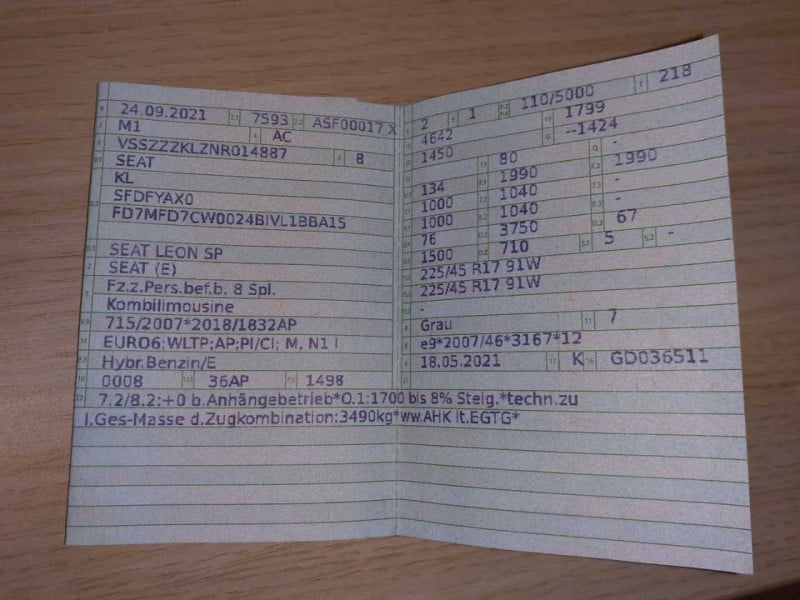 24.09.2021 7593 ASF00017 X
M1 AC
VSSZZZKLZNR014887 8
SEAT
KL
SFDFYAX0
FD7MFD7CW0024BIVL1BBA15
SEAT LEON SP
SEAT (E)
Fz.z.Pers.bef.b. 8 Spl.
Kombilimousine
715/2007*2018/1832AP
EURO6;WLTP;AP;PI/CI; M, N1 I
Hybr.Benzin/E
0008 36AP 1498
2 1 110/5000 218
4642 1799
1450 --1424
80 -
134 1990 1990
1000 1040 -
1000 1040 -
76 3750 67
1500 710 5 -
225/45 R17 91W
225/45 R17 91W
-
Grau 7
e9*2007/46*3167*12
18.05.2021 K GD036511
7.2/8.2:+0 b.Anhängebetrieb*O.1:1700 bis 8% Steig.*techn.zu
l.Ges-Masse d.Zugkombination:3490kg*ww.AHK lt.EGTG*